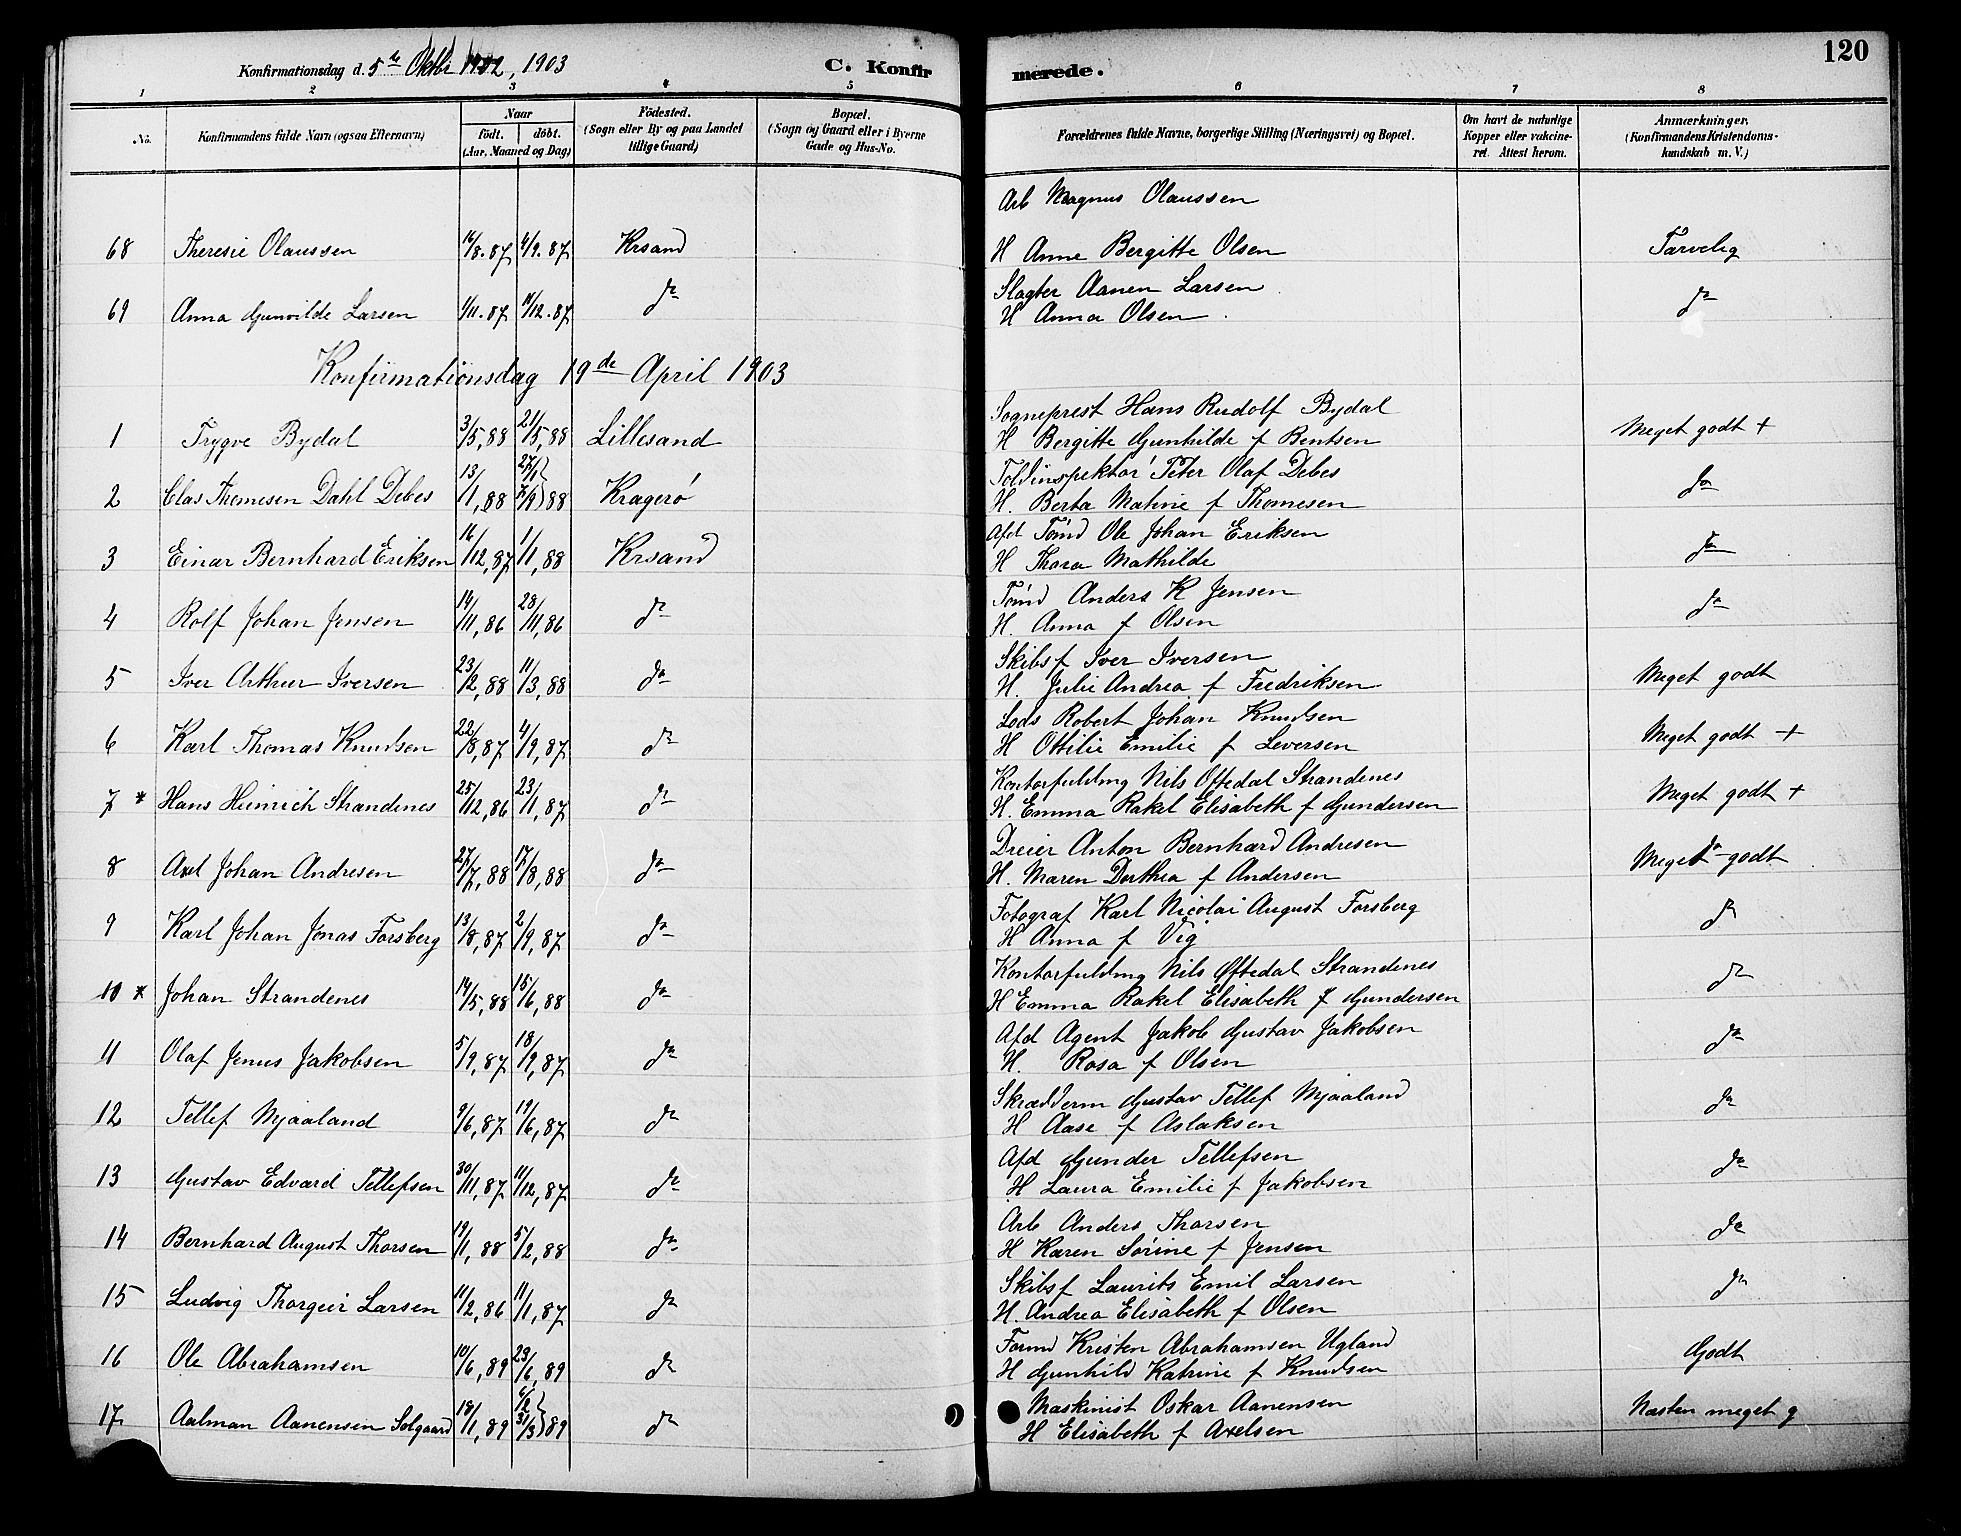 Konfirmationsdag d. 5te Oktbr 1902, 1903 C. Konfirmerede. 120
1 2 3 4 5 6 7 8
No. Konfirmandens fulde Navn (ogsaa Efternavn) Naar født. døbt. (Aar, Maaned og Dag) Fødested. (Sogn eller By og paa Landet tillige Gaard) Bopæl. (Sogn og Gaard eller i Byerne Gade og Hus-No. Forældrenes fulde Navne, borgerlige Stilling (Næringsvei) og Bopæl. Om havt de naturlige Kopper eller vakcineret. Attest herom. Anmærkninger. (Konfirmandens Kristendomskundskab m. V.)
Arb Magnus Olaussen
68 Theresie Olaussen 16/8.87 4/9.87 Krsand H Anne Bergitte Olsen Tarvelig
Slagter Aanen Larsen
69 Anna Gunvilde Larsen 1/11.87 11/12.87 do H Anna Olsen do
Konfirmationsdag 19de April 1903
Sogneprest Hans Rudolf Bydal
1 Trygve Bydal 3/5,88 21/5,88 Lillesand H Bergitte Gunhilde f Bentsen Meget godt +
Toldinspektør Peter Olaf Debes
2 Clas Thomesen Dahl Debes 13/1,88 27/1 7/9 } 88 Kragerø H. Berta Matine f Thomesen do
Afd Tømd Ole Johan Eriksen
3 Einar Bernhard Eriksen 16/12,87 1/1,88 Krsand H Thora Mathilde do
Tømd Anders K Jensen
4 Rolf Johan Jensen 14/11,86 28/11,86 do H. Anna f Olsen do
Skibsf Iver Iversen
5 Iver Arthur Iversen 23/2,88 11/3,88 do H. Julie Andrea f Fredriksen Meget godt
Lods Robert Johan Knudsen
6 Karl Thomas Knudsen 22/8,87 4/9,87 do H Ottilie Emilie f Leversen Meget godt +
Kontorfuldmg Nils Oftedal Strandenes
7 * Hans Heinrich Strandenes 25/12,86 23/1,87 do H. Emma Rakel Elisabeth f Gundersen Meget godt +
Dreier Anton Bernhard Andresen
8 Axel Johan Andresen 27/7,88 17/8,88 do H. Maren Dorthea f Andersen Meget godt do
Fotograf Karl Nicolai August Forsberg
9 Karl Johan Jonas Forsberg 13/8,87 2/9,87 do H Anna f Vig do
Kontorfuldmg Nils Oftedal Strandenes
10 * Johan Strandenes 14/5,88 15/6,88 do H Emma Rakel Elisabeth f Gundersen do
Afd Agent Jakob Gustav Jakobsen
11 Olaf Jenus Jakobsen 5/9,87 18/9,87 do H. Rosa f Olsen do
Skrædderm Gustav Tellef Mjaaland
12 Tellef Mjaaland 9/6,87 19/6,87 do H Aase f Aslaksen do
Afd Gunder Tellefsen
13 Gustav Edvard Tellefsen 30/11,87 11/12,87 do H Laura Emilie f Jakobsen do
Arb Anders Thorsen
14 Bernhard August Thorsen 19/1,88 5/2,88 do H Karen Sørine f Jensen do
Skibsf Laurits Emil Larsen
15 Ludvig Thorgeir Larsen 11/2,86 11/1,87 do H. Andrea Elisabeth f Olsen do
Formd Kristen Abrahamsen Ugland
16 Ole Abrahamsen 10/6,89 23/6,89 do H Gunhild Katrine f Knudsen Godt
Maskinist Oskar Aanensen
17 Aalman Aanensen Solgaard 18/1,89 6/2 31/3 } 89 do H Elisabeth f Axelsen Næsten meget g